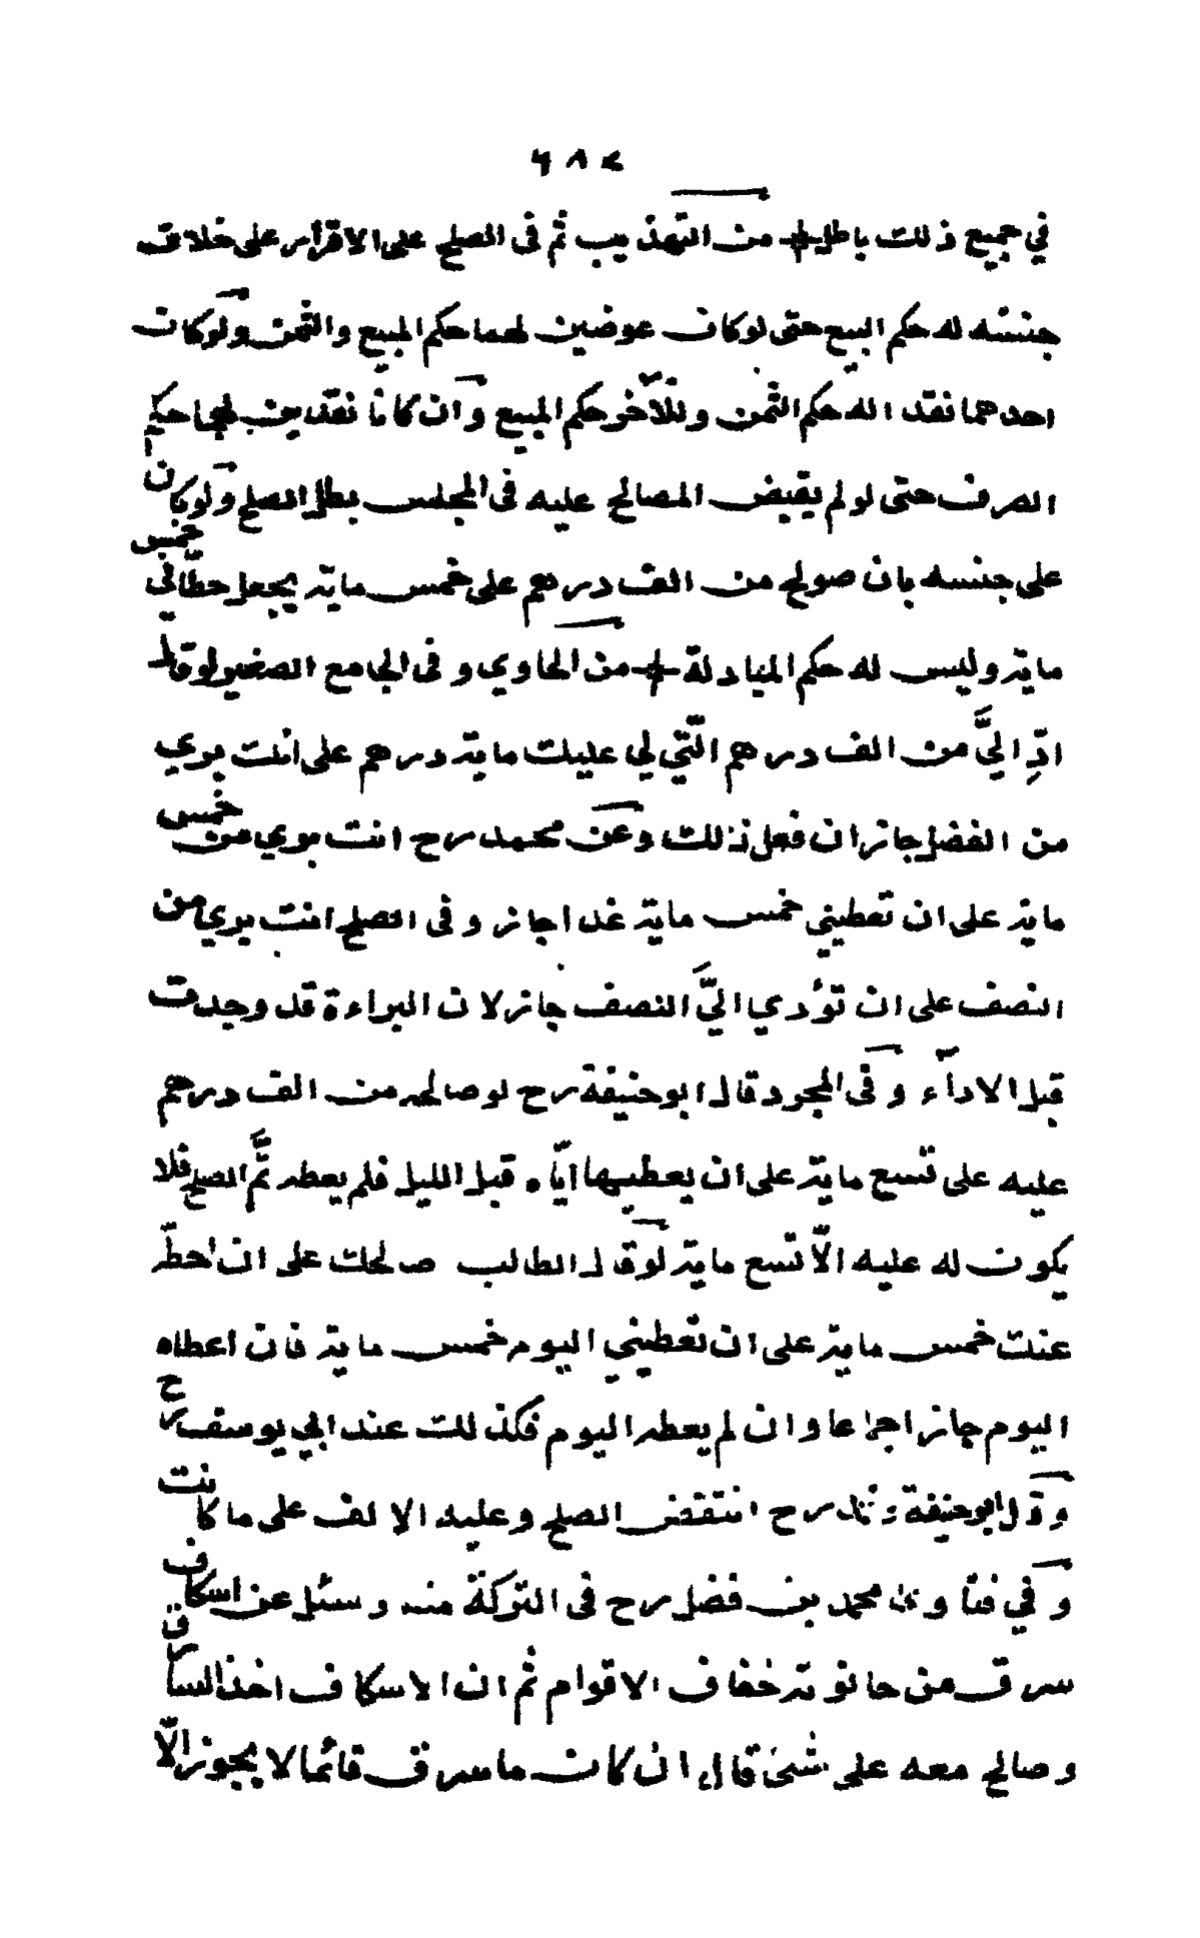 ٦٨٢
في جميع ذلك باطل + من التهذيب ثم فى الصلح على الاقرار على خلاف
جنسه له حكم البيع حتى لو كان عوضين لهما حكم المبيع والثمن ولو كان
احدهما نقد اله حكم الثمن وللآخر حكم المبيع وان كانا نقدين لهما حكم
الصرف حتى لو لم يقبض المصالح عليه فى المجلس بطل الصلح ولو كان
على جنسه بان صولح من الف درهم على خمس ماية يجعل حطا في خمس
ماية وليس له حكم المبادلة + من الحاوي وفى الجامع الصغير لو قال
ادِّ اليَّ من الف درهم الّتي لي عليك ماية درهم على انك بري
من الفضل جاز ان فعل ذلك وعن محمد رح انت بري من خمس
ماية على ان تعطيني خمس ماية غدا جاز وفى الصلح انت بري من
النصف على ان تؤدي اليَّ النصف جاز لان البراءة قد وجدت
قبل الاداء وفى المجرد قال ابو حنيفة رح لو صالحه من الف درهم
عليه على تسع ماية على ان يعطيها ايّاه قبل الليل فلم يعطه ثمّ الصلح فلا
يكون له عليه الاّ تسع ماية لو قال الطالب صالحك على ان احطّ
عنك خمس ماية على ان تعطيني اليوم خمس ماية فان اعطاه
اليوم جاز اجماعا وان لم يعطه اليوم فكذلك عند ابي يوسف رح
وقال ابو حنيفة رح انتقض الصلح وعليه الالف على ما كانت
وفي فتاوى محمد بن فضل رح فى التركة منه وسئل عن اسكاف
سرق من حانوته خفاف الاقوام ثم ان الاسكاف اخذ السارق
وصالح معه على شئ قال ان كان ما سرق قائما لا يجوز الاّ